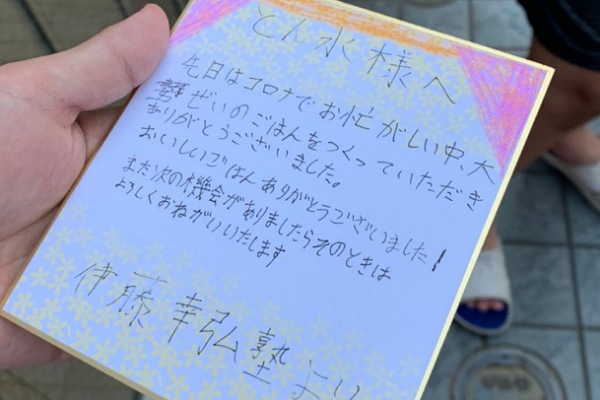 とん水様へ
先日はコロナでお忙がしい中、大
勢ぜいのごはんをつくっていただき
ありがとうございました。
おいしいごはんありがとうございました!
また次の機会がありましたらそのときは
よろしくおねがいいたします
伊藤幸弘塾より